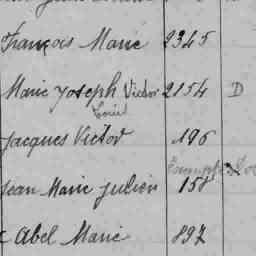 François Marie 2345
Marie Joseph Victor 2154 D
Louis
Jacques Victor 196
Jean Marie Julien 158
Abel Marie 897